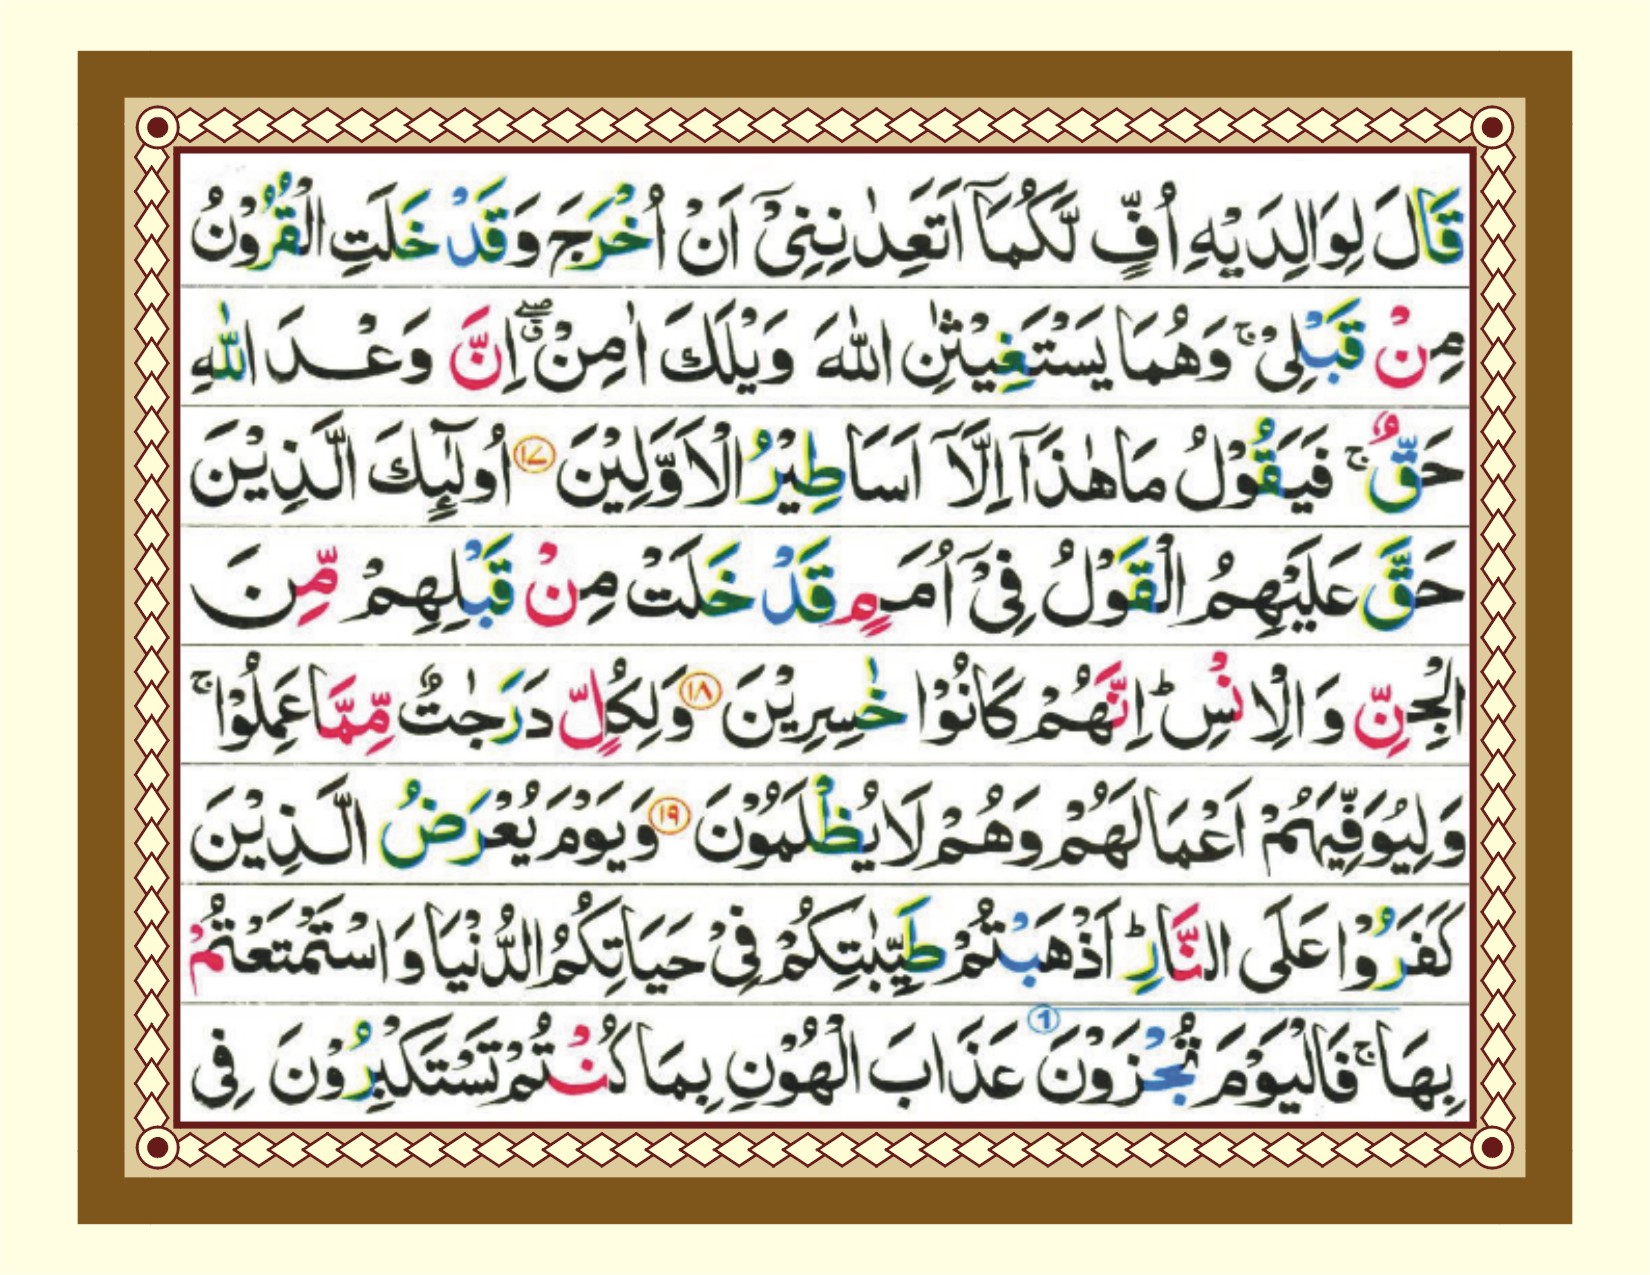 قَالَ لِوَالِدَيْهِ اُفٍّ لَّكُمَاۤ اَتَعِدٰنِنِىْۤ اَنْ اُخْرَجَ وَقَدْ خَلَتِ الْقُرُوْنُ
مِنْ قَبْلِىْ ۚ وَهُمَا يَسْتَغِيْثٰنِ اللّٰهَ وَيْلَكَ اٰمِنْ ۖۗ اِنَّ وَعْدَ اللّٰهِ
حَقٌّ ۚ فَيَقُوْلُ مَا هٰذَاۤ اِلَّاۤ اَسَاطِيْرُ الْاَوَّلِيْنَ ۝۱۷ اُولٰٓئِكَ الَّذِيْنَ
حَقَّ عَلَيْهِمُ الْقَوْلُ فِىْۤ اُمَمٍ قَدْ خَلَتْ مِنْ قَبْلِهِمْ مِّنَ
الْجِنِّ وَالْاِنْسِ ؕ اِنَّهُمْ كَانُوْا خٰسِرِيْنَ ۝۱۸ وَلِكُلٍّ دَرَجٰتٌ مِّمَّا عَمِلُوْا ۚ
وَلِيُوَفِّيَهُمْ اَعْمَالَهُمْ وَهُمْ لَا يُظْلَمُوْنَ ۝۱۹ وَيَوْمَ يُعْرَضُ الَّذِيْنَ
كَفَرُوْا عَلَى النَّارِ ؕ اَذْهَبْتُمْ طَيِّبٰتِكُمْ فِىْ حَيَاتِكُمُ الدُّنْيَا وَاسْتَمْتَعْتُمْ
بِهَا ۚ فَالْيَوْمَ تُجْزَوْنَ ① عَذَابَ الْهُوْنِ بِمَا كُنْتُمْ تَسْتَكْبِرُوْنَ فِى